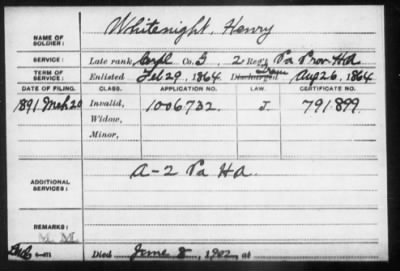 NAME OF SOLDIER: Whitenight, Henry
SERVICE: Late rank, Corpl Co. G, 2 Reg't Pa Prov. H.A.
TERM OF SERVICE: Enlisted Feb 29, 1864 Discharged Aug 26, 1864
DATE OF FILING. CLASS. APPLICATION NO. LAW. CERTIFICATE NO.
1891 Mch 20 Invalid, 1006732 J. 791.899
Widow,
Minor,
ADDITIONAL SERVICES: A-2 Pa H.A.
REMARKS:
Died June 8, 1902, at